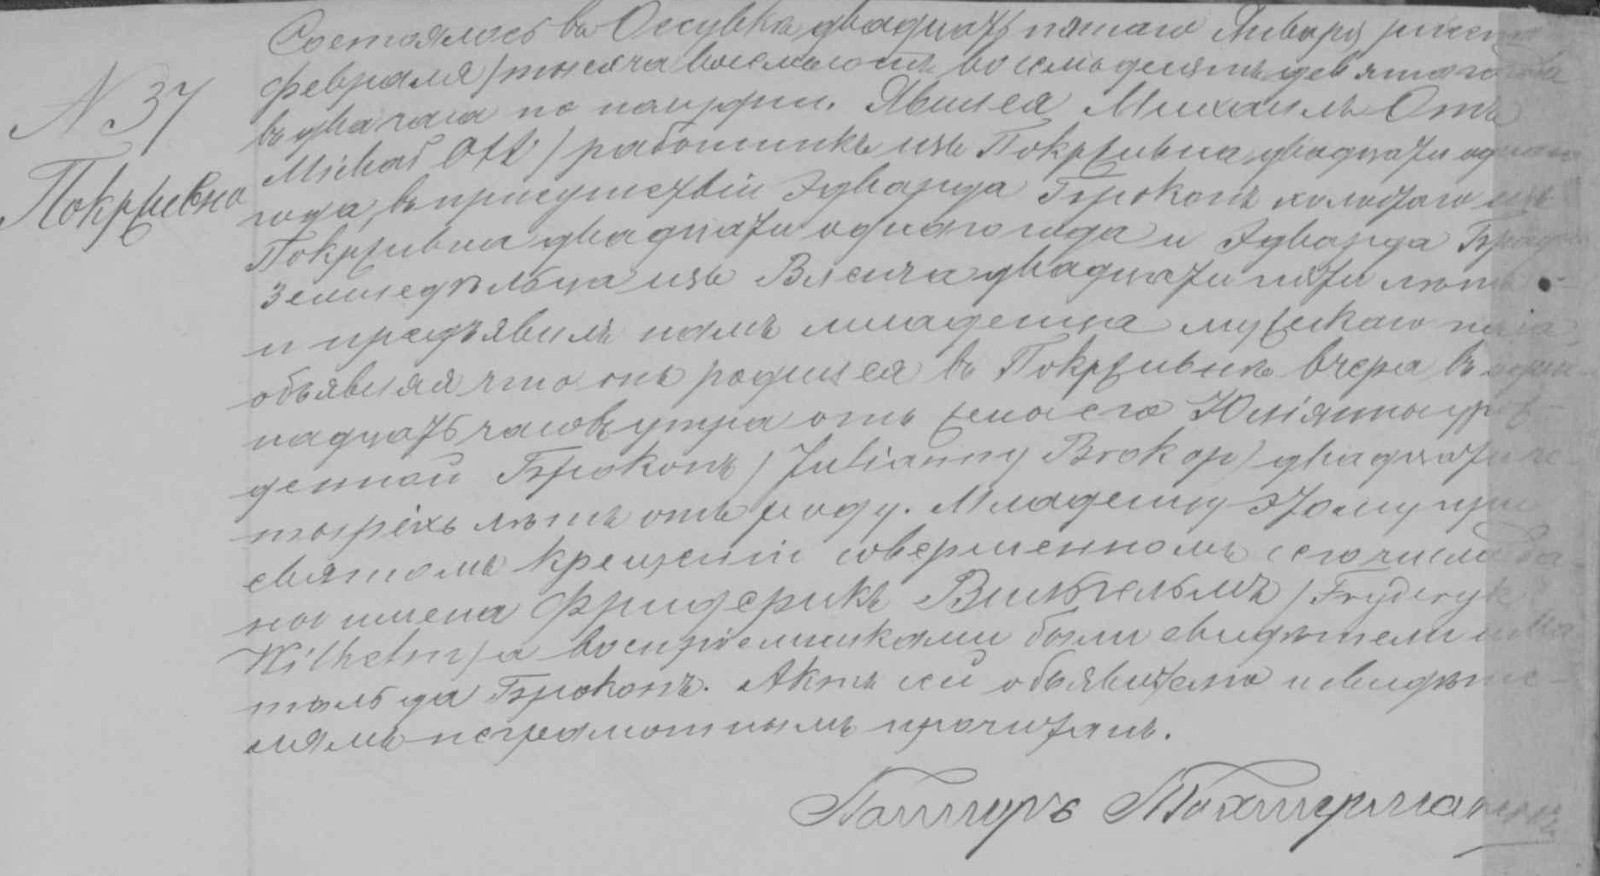 Состоялось въ Оссувкѣ двадцать пятаго Января /шестаго
Февраля/ тысяча восемьсотъ восемьдесятъ девятаго года
въ два часа по полудни. Явился Михаилъ Отъ
Michał Ott / работникъ изъ Покржывна двадцати одного
года, въ присутствіи Эдварда Брокопъ холостаго изъ
Покржывна двадцати одного года и Эдварда
земледѣльца изъ двадцати пяти лѣтъ
и предъявилъ намъ младенца мужскаго пола
объявляя что онъ родился въ Покржывнѣ вчера въ один-
надцать часовъ утра отъ жены его Юліянны уро-
денной Брокопъ / Julianny Brokop / двадцати че-
тырёхъ лѣтъ отъ роду. Младенцу этому при
святомъ крещеніи совершенномъ сего числа да-
ны имена Фридерикъ Вильгельмъ / Fryderyk
Wilhelm / а воспріемниками были свидѣтели и
тильда Брокопъ. Актъ сей объявителю и свидѣте-
лямъ неграмотнымъ прочитанъ.
Пасторъ
N 37
Покржывно